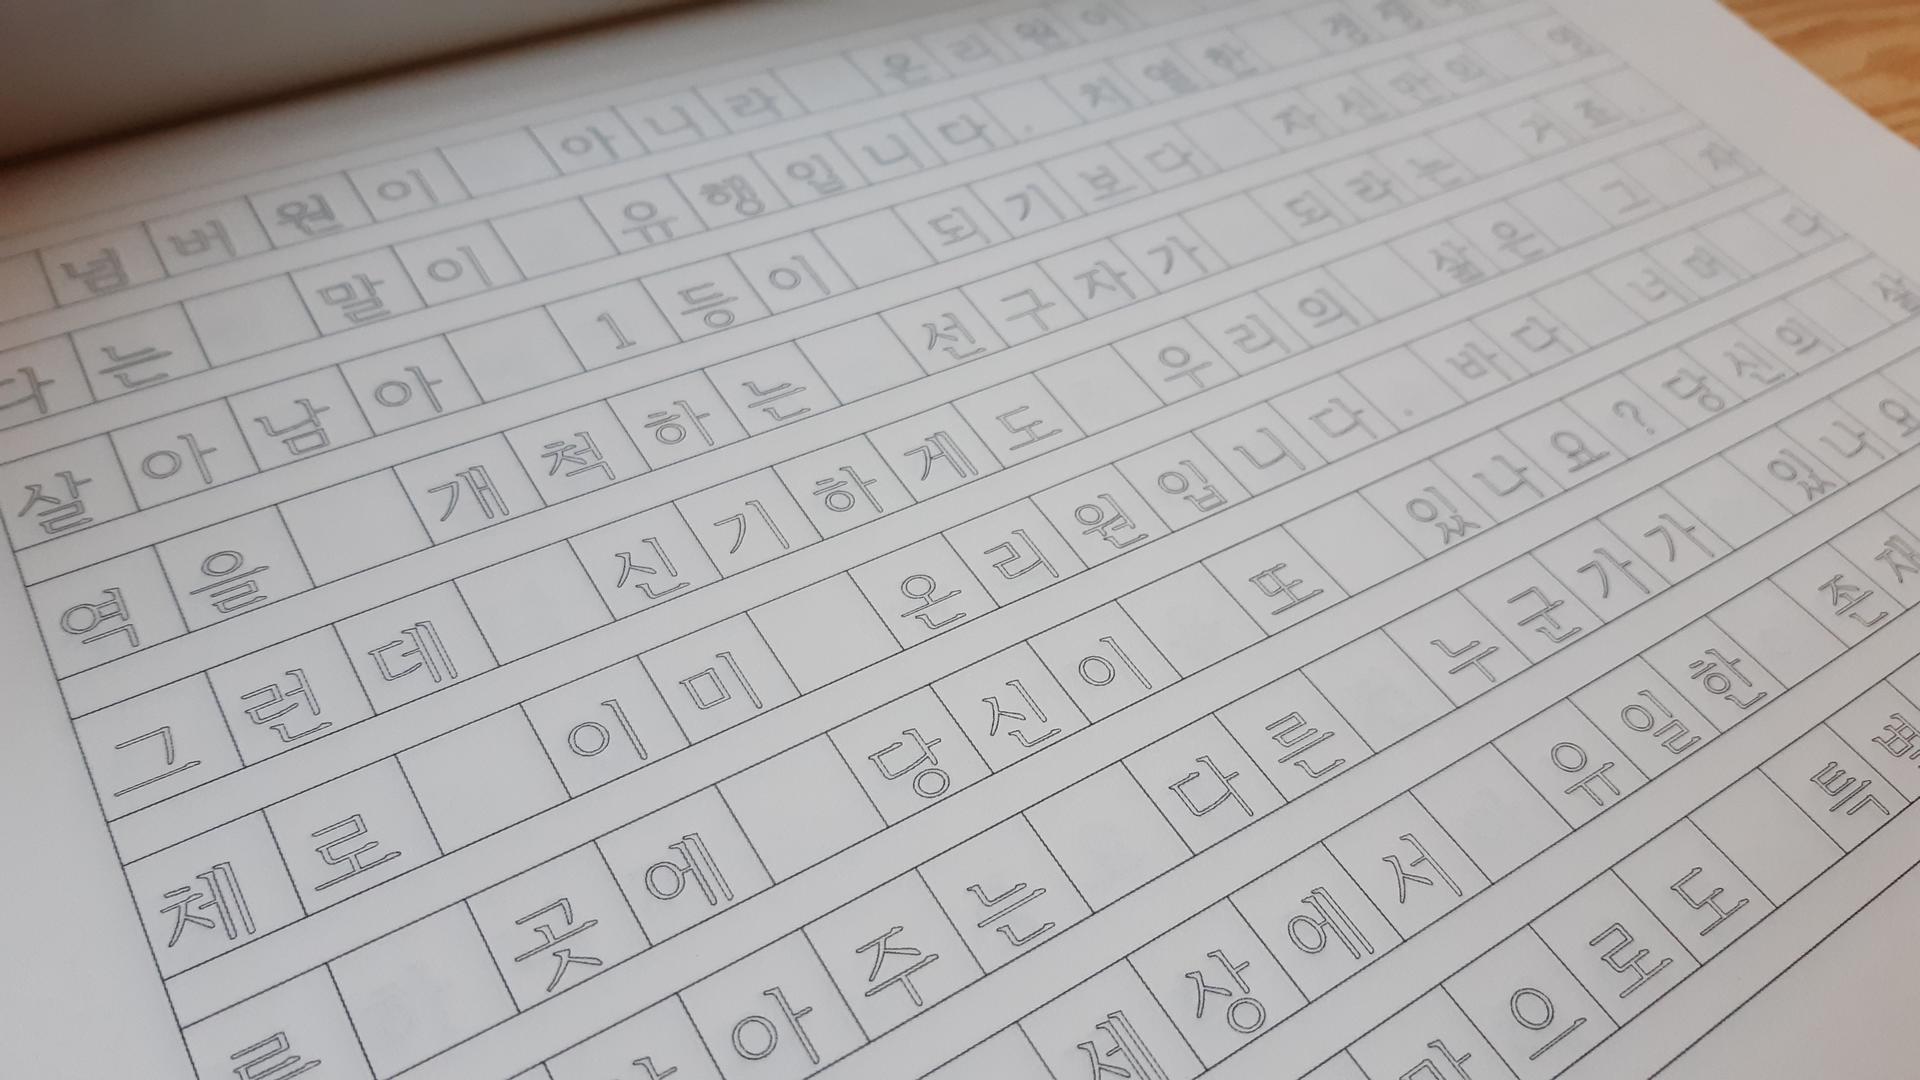 넘버원이 아니라 온리원이
다는 말이 유행입니다. 치열한 경쟁에
살아남아 1등이 되기보다 자신만의 영
역을 개척하는 선구자가 되라는 거죠.
그런데 신기하게도 우리의 삶은 그 자
체로 이미 온리원입니다. 바다 너머 다
른 곳에 당신이 또 있나요? 당신의 삶
아주는 다른 누군가가 있나요
세상에서 유일한 존재
만으로도 특별